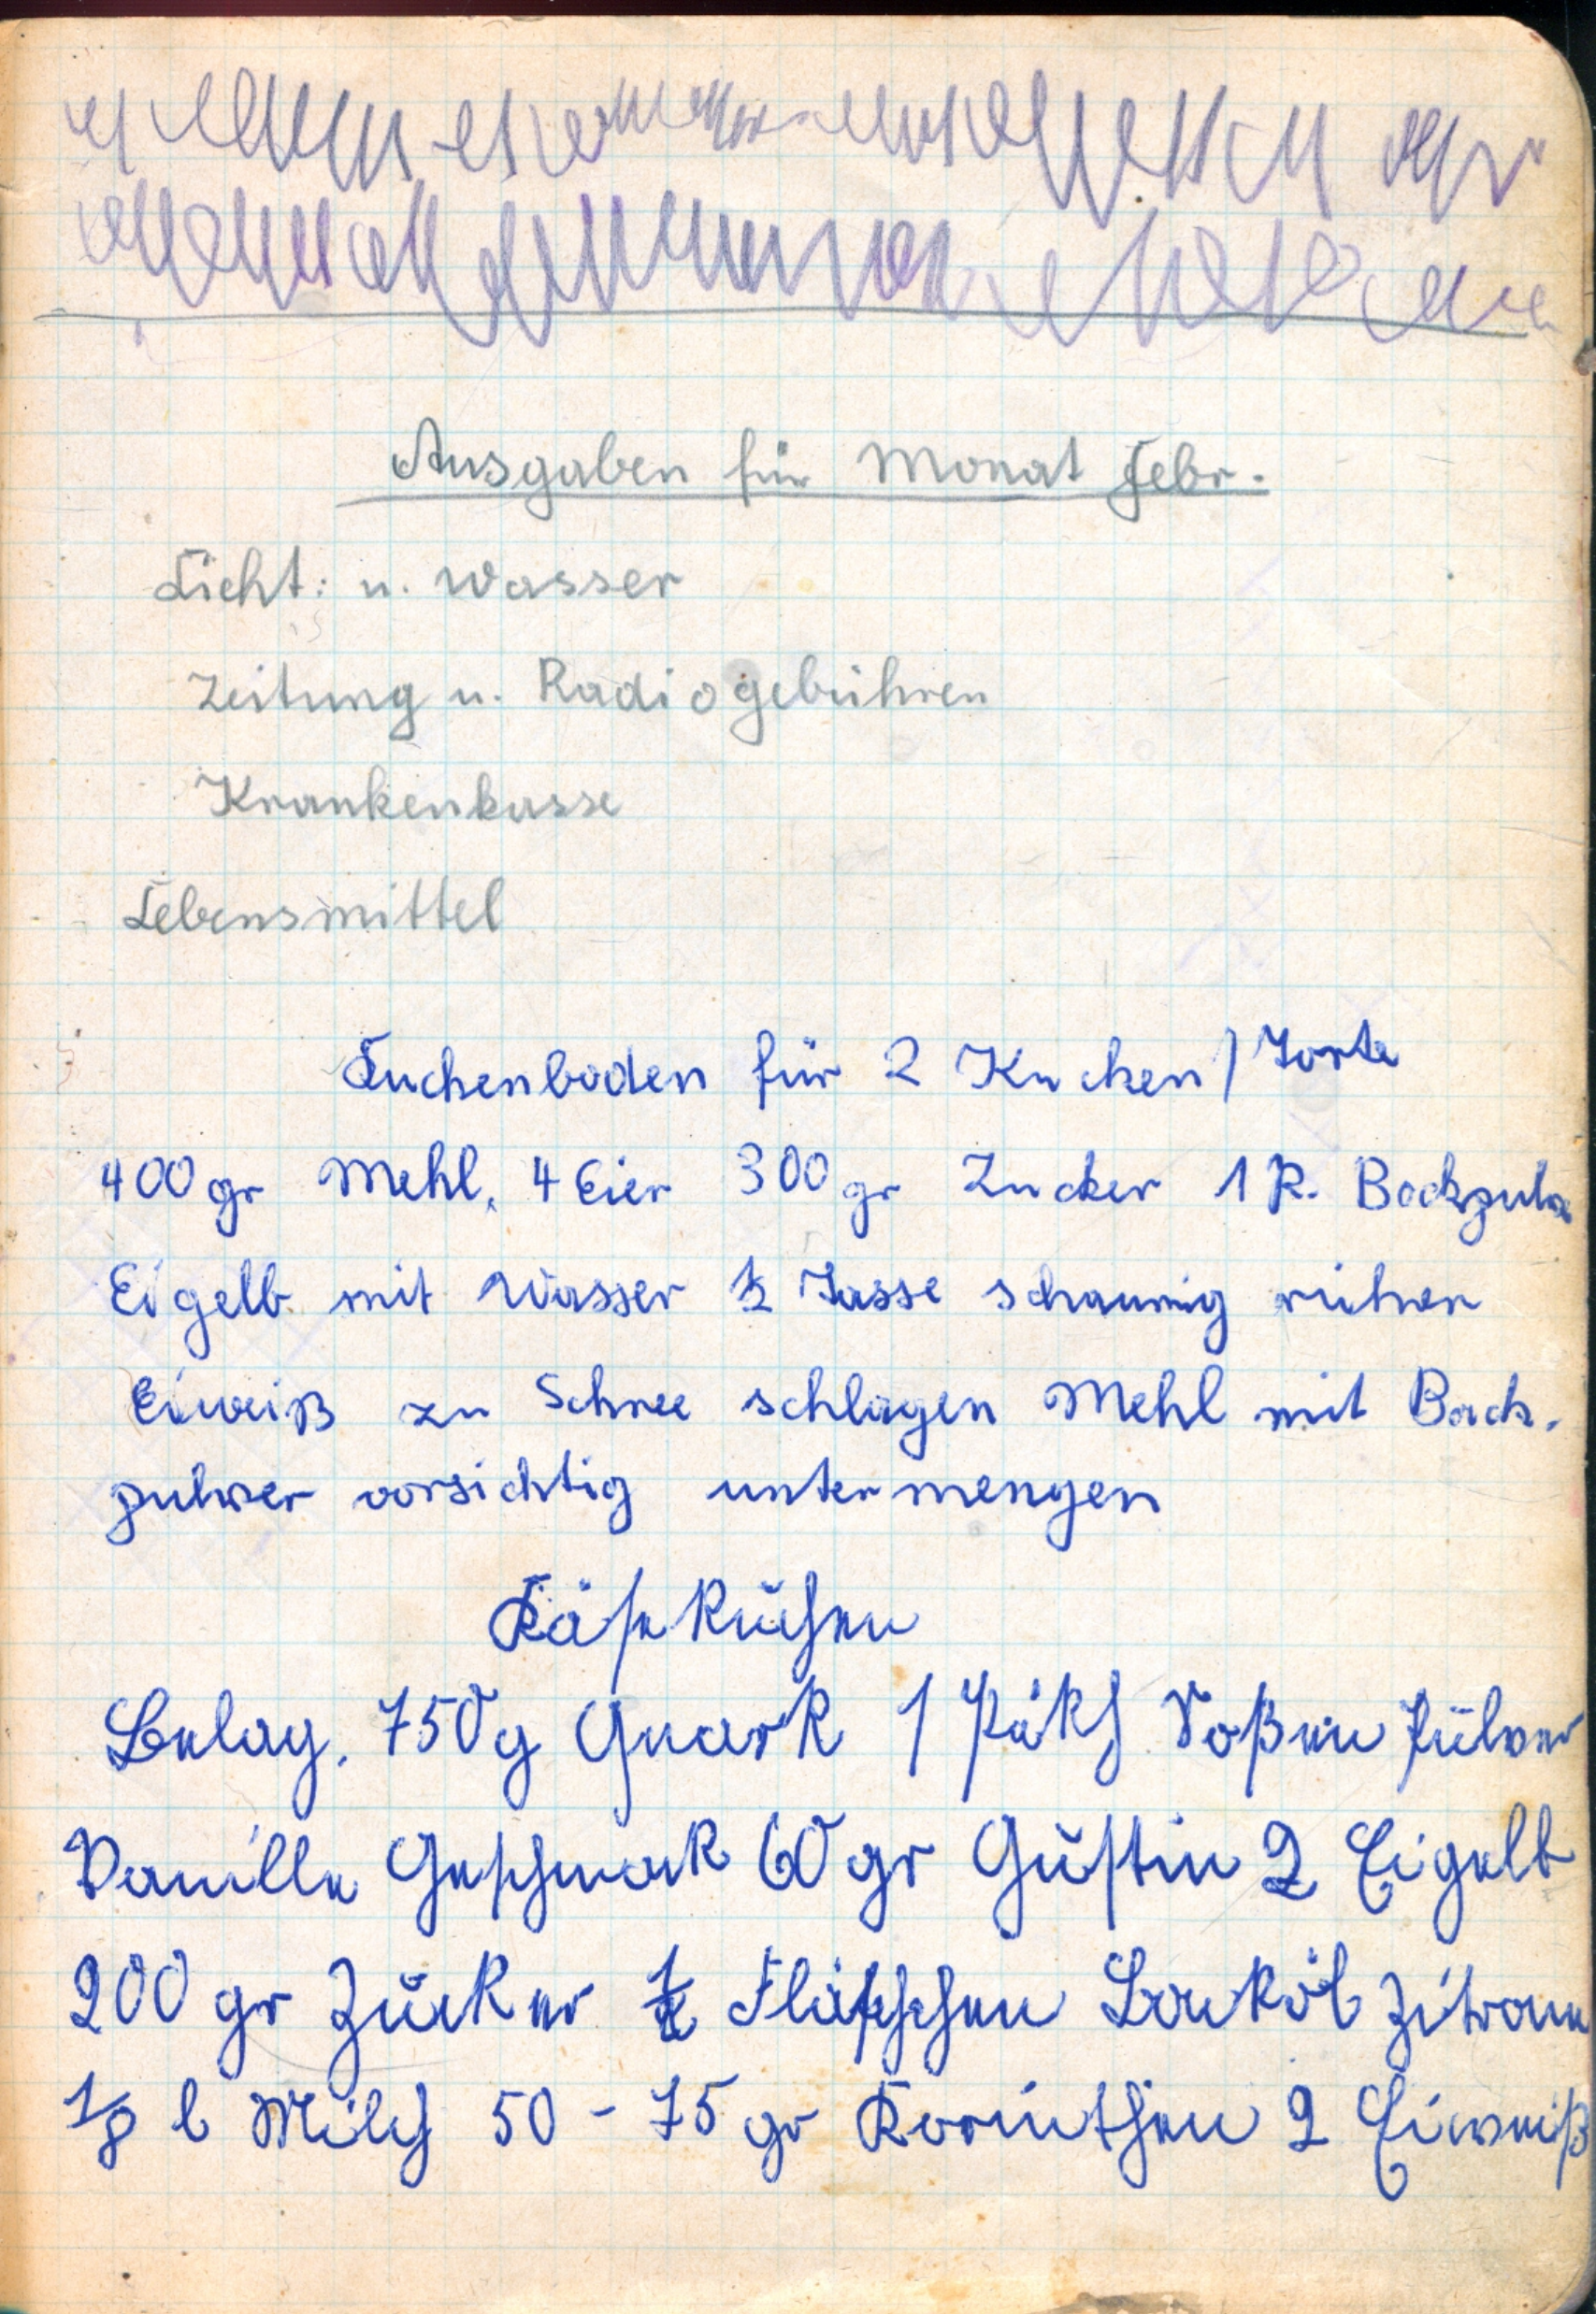 Ausgaben für Monat Febr.
Licht: u. Wasser
Zeitung u. Radiogebühren
Krankenkasse
Lebensmittel
Kuchenboden für 2 Kuchen / Torte
400 gr Mehl, 4 Eier 300 gr Zucker 1 P. Backpulv
Eigelb mit Wasser ½ Tasse schaumig rühren
Eiweiß zu Schnee schlagen Mehl mit Back.
pulver vorsichtig untermengen
Käsekuchen
Belag. 750 g Quark 1 Päkch Soßen Pulver
Vanille Geschmack 60 gr Gustin 2 Eigelb
200 gr Zucker ½ Fläschchen Backöl Zitrone
1/8 l Milch 50 - 75 gr Korinthen 2 Eiweiß